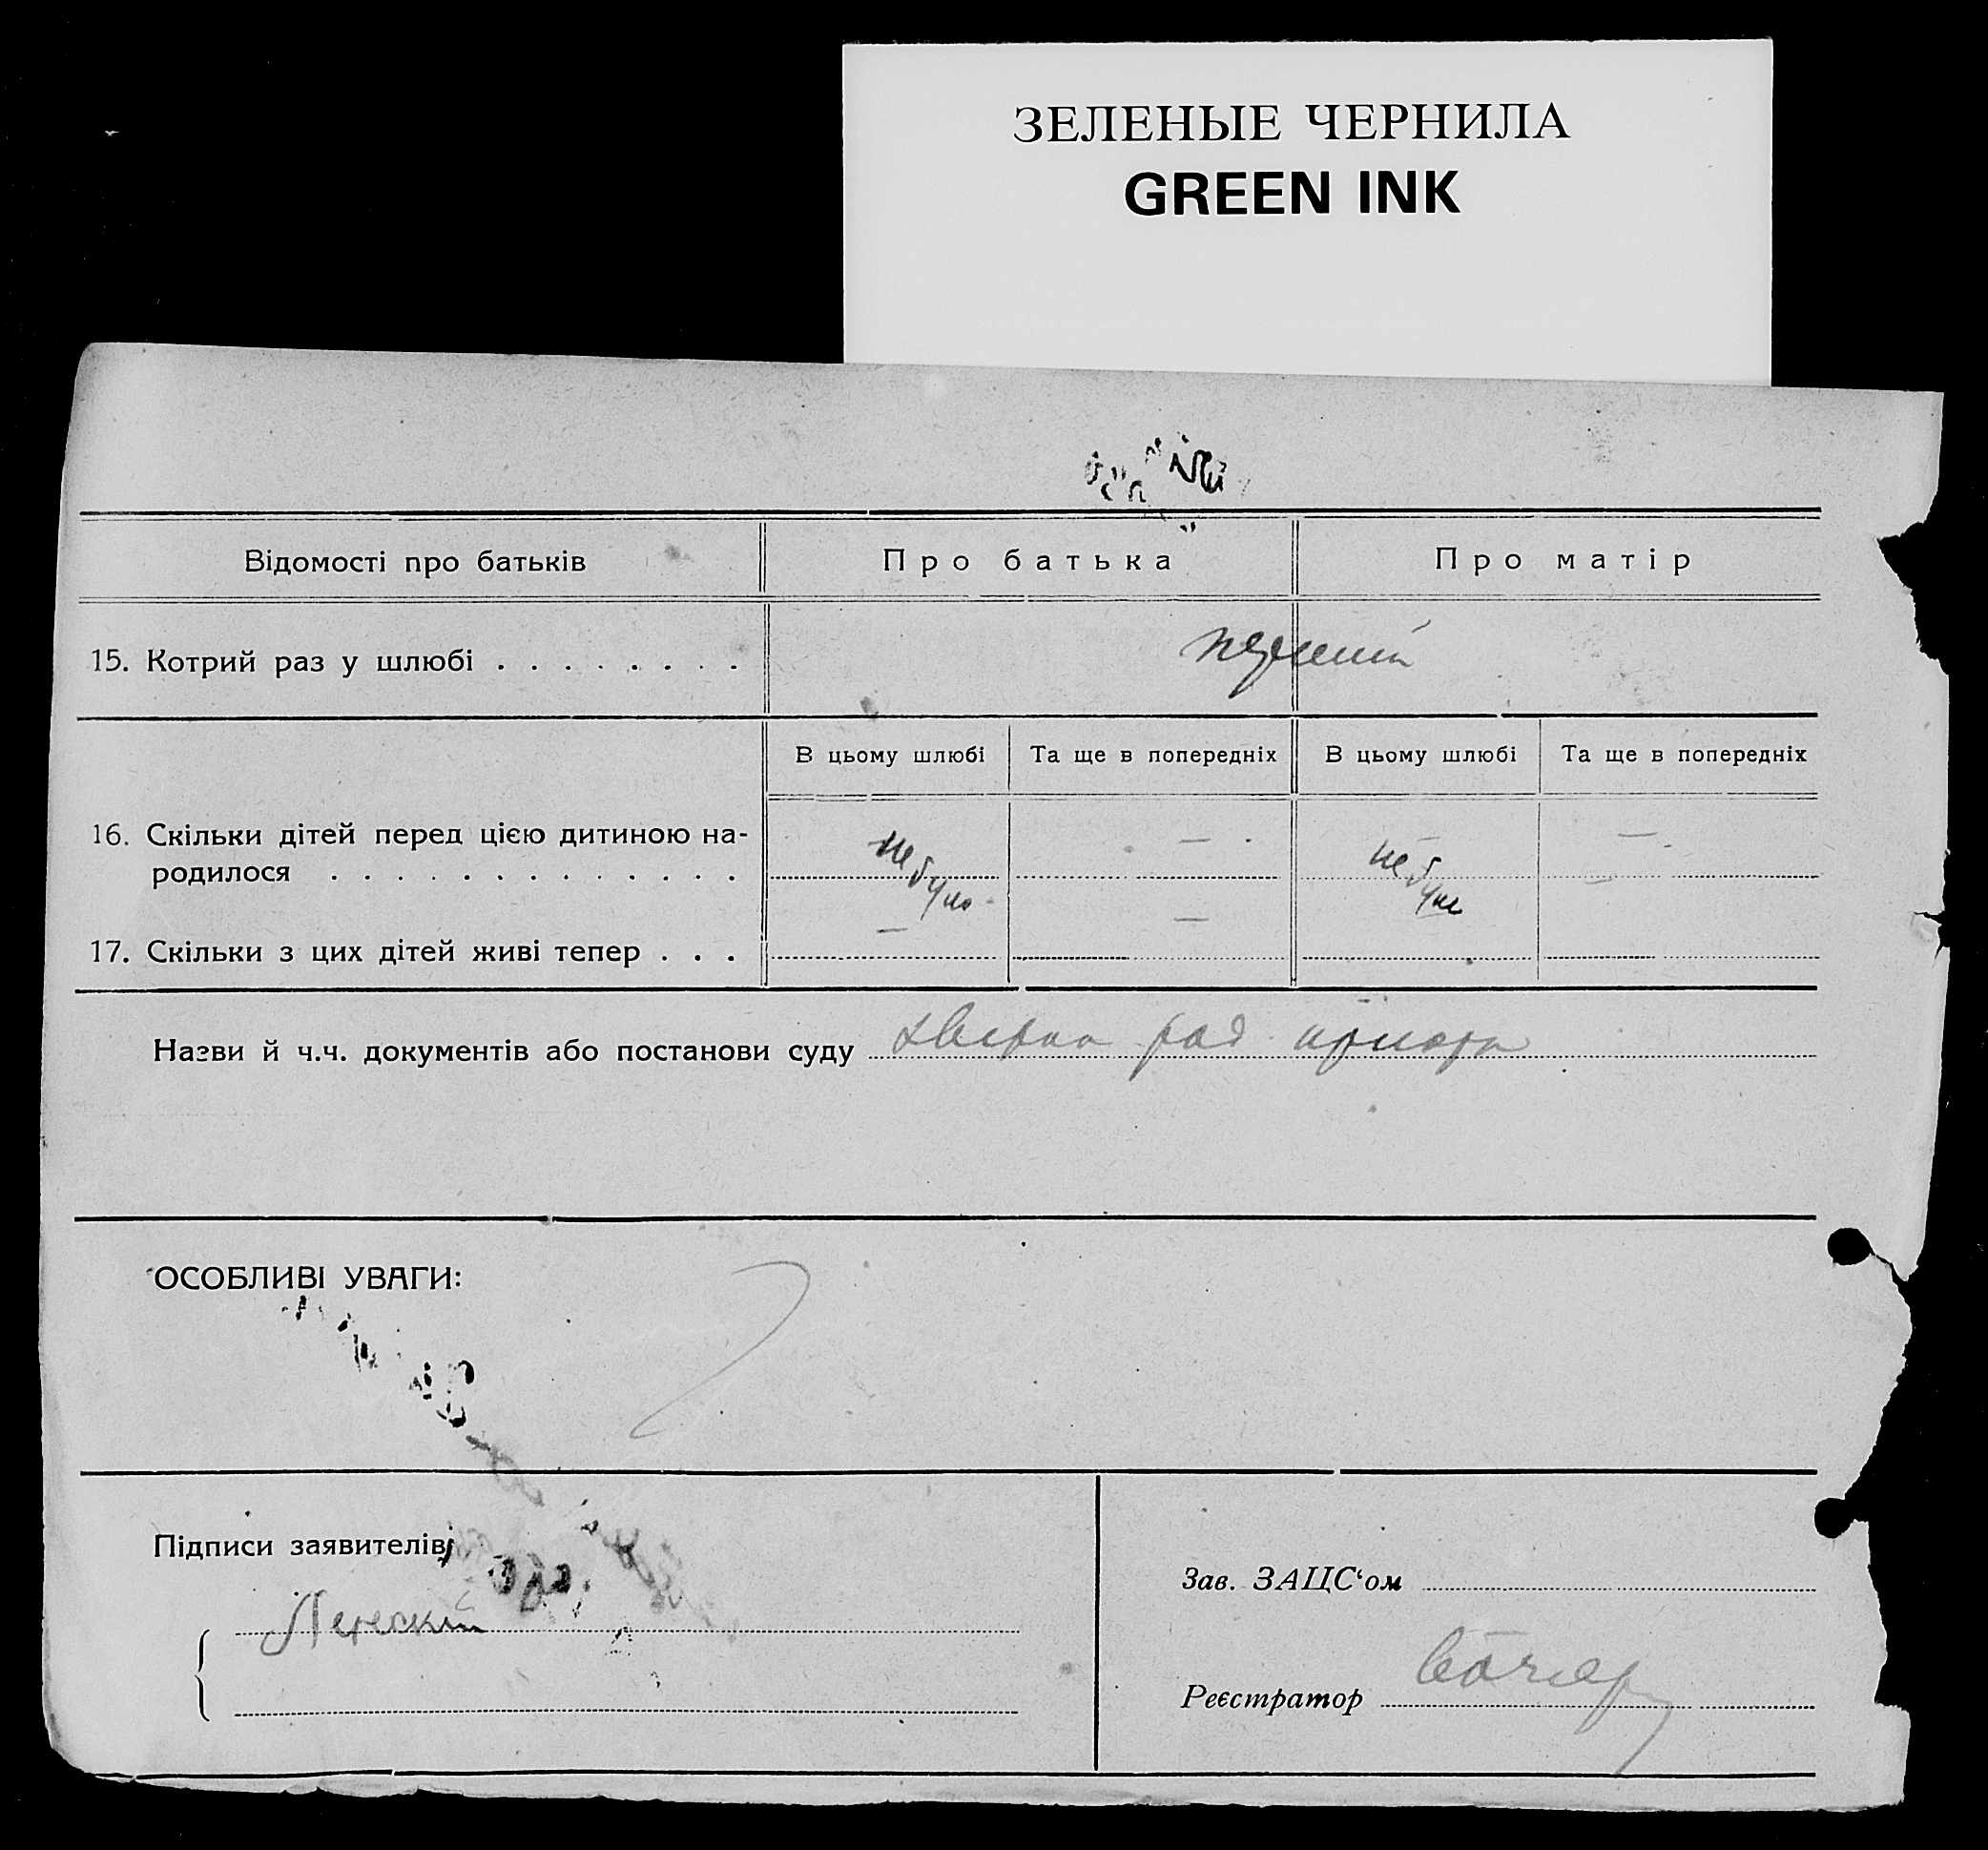 ЗЕЛЕНЫЕ ЧЕРНИЛА
GREEN INK
Відомості про батьків
Про батька
Про матір
15. Котрий раз у шлюбі . . . . . . . .
перший
В цьому шлюбі
Та ще в попередніх
В цьому шлюбі
Та ще в попередніх
16. Скільки дітей перед цією дитиною на-
родилося . . . . . . . . . . . . .
не було
—
не було
—
17. Скільки з цих дітей живі тепер . . .
—
—
—
Назви й ч.ч. документів або постанови суду
ОСОБЛИВІ УВАГИ:
Підписи заявителів
Зав. ЗАЦС‘ом
Реєстратор